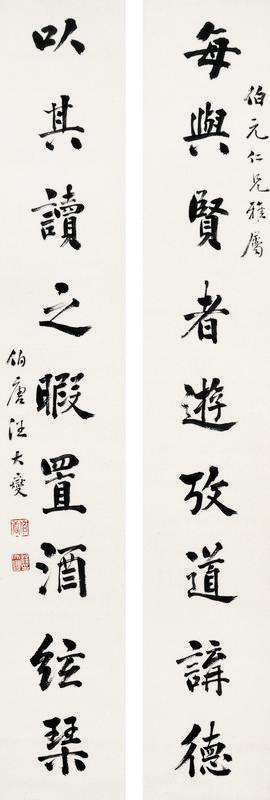 伯元仁兄雅屬
每與賢者遊攷道講德
以其讀之暇置酒絃琴
伯唐汪大燮